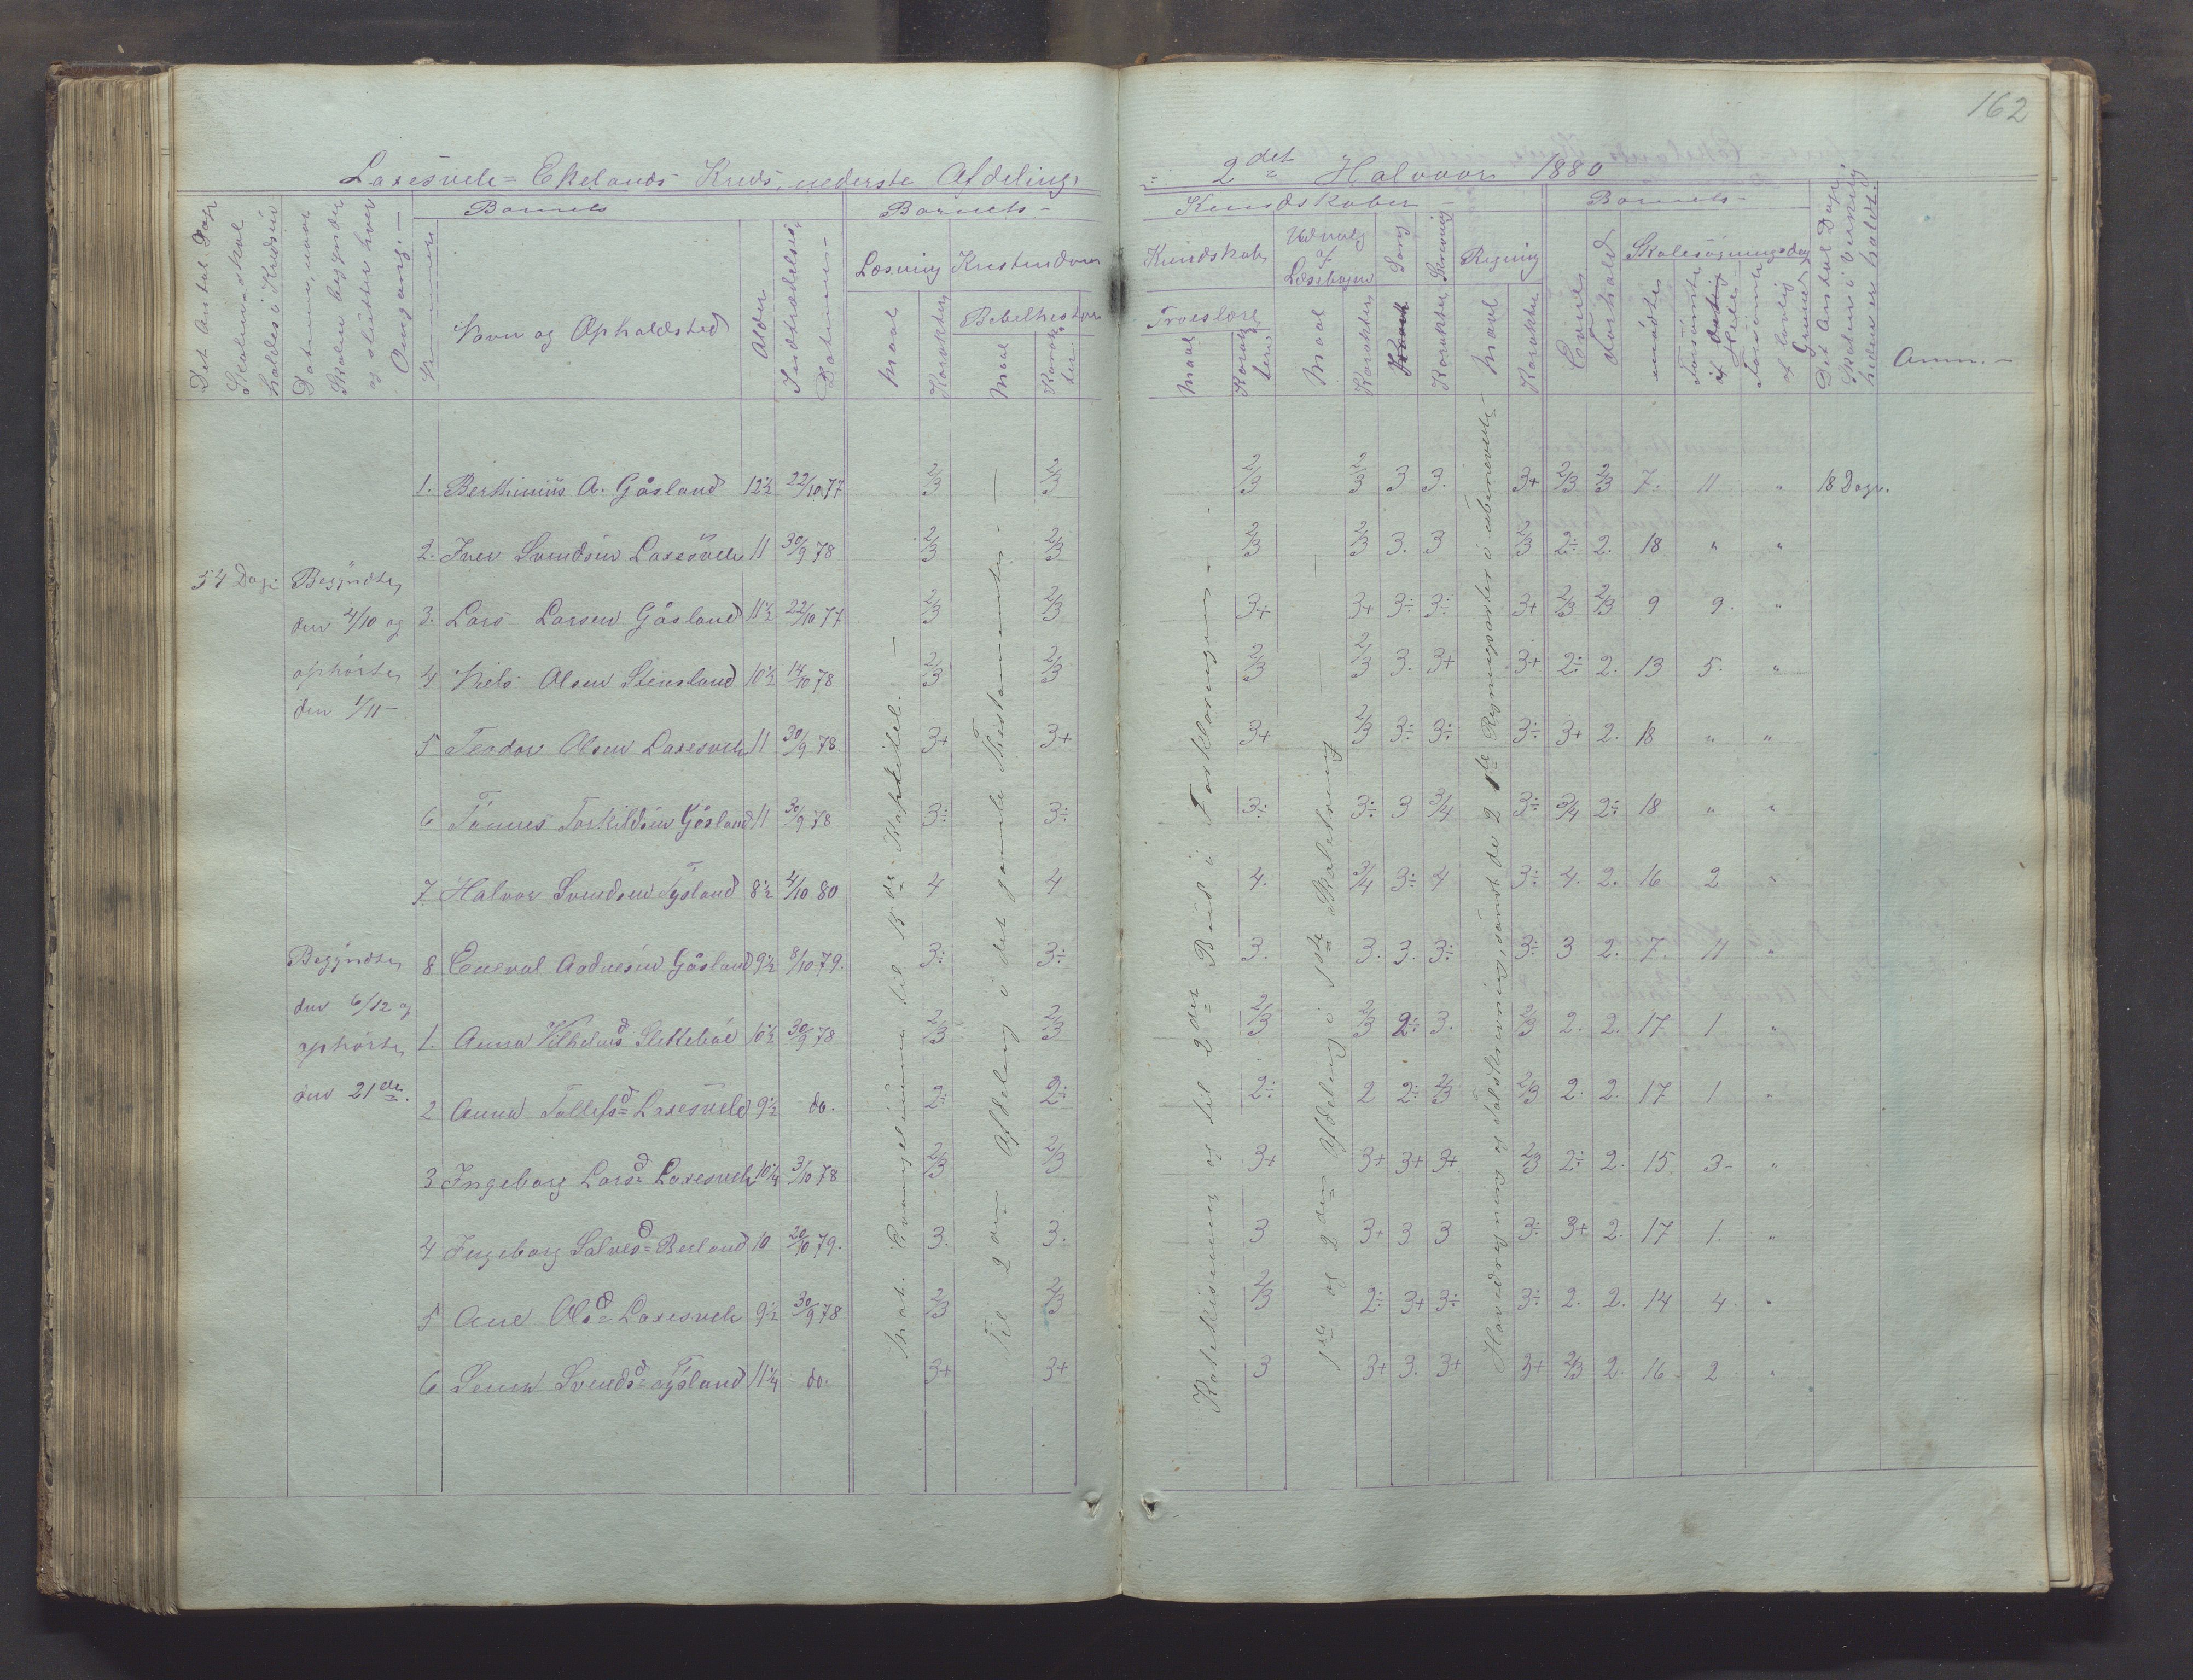 162
Laxesvele= Ekelands Kreds, nederste Afdeling,
= 2det Halvaar 1880
Det Antal Dage
Skolen skal
holdes i Kredsen
Datum, naar
Skolen begynder
og slutter hver
Omgang. —
Barnets
Nummer
Navn og Opholdsted
Alder
Indtrædelses
Datum —
Barnets —
Læsning
Maal
Karakter
Kristendom
Bibelhistorie
Maal
Karak
ter
Kundskaber —
Kundskab
Troeslære
Maal
Karak
ter
Udvalg
af
Læsebogen
Maal
Karakter
Sang
Karakter
Skrivning
Karakter
Regning
Maal
Karakter
Barnets —
Evner
Forhold
Skolesøgningsdage
mødte
Forsømte
af
Hele
Forsømte
af lovlig
Grund
Det Antal Dage
Skolen i Virkelig
heden er holdt.
Anm. —
54 Dage
Begyndte
den 4/10 og
ophørte
den 1/11 —
Begyndte
den 6/12 og
ophørte
den 21de.
1. Berthinius A. Gåsland 12½ 22/10 77 2/3 2/3 2/3 2/3 3 3. 3+ 2/3 2/3 7. 11 " 18 Dage.
2. Iver Svendsen Laxesvele 11 30/9 78 2/3 2/3 2/3 2/3 3. 3 2/3 2÷ 2. 18 " "
3. Lars Larsen Gåsland 11½ 22/10 77 2/3 2/3 3+ 3+ 3÷ 3÷ 3+ 2/3 2/3 9 9. "
4 Niels Olsen Stensland 10½ 14/10 78 2/3 2/3 2/3 2/3 3. 3+ 3+ 2÷ 2. 13 5. "
5 Teodor Olsen Laxesvele 11 30/9 78 3+ 3+ 3+ 2/3 3÷ 3÷ 3÷ 3+ 2. 18 " "
6 Tönnes Torkildsen Gåsland 11 30/9 78 3÷ 3÷ 3÷ 3÷ 3 3/4 3÷ 3/4 2÷ 18 " "
7 Halvor Svendsen Tysland 8½ 4/10 80 4 4 4. 3/4 3÷ 4 3÷ 4. 2. 16 2 "
8 Enevald Andresen Gåsland 9½ 8/10 79. 3÷ 3÷ 3. 3. 3. 3÷ 3÷ 3 2. 7. 11 "
1. Anna Vilhelmsd Slettebøe 10½ 30/9 78 2/3 2/3 2/3 2/3 2÷ 3. 2/3 2. 2. 17 1 "
2 Anna Tollefsd= Laxesvele 9½ do. 2÷ 2÷ 2÷ 2 2÷ 2/3 2/3 2. 2. 17 1 "
3 Ingeborg Larsd= Laxesvele 10¼ 3/10 78 2/3 2/3 3+ 3+ 3+ 3+ 2/3 2÷ 2. 15 3- "
4 Ingeborg Salvesd= Berland 10 20/10 79. 3. 3. 3 3+ 3 3 3÷ 3+ 2. 17 1. "
5 Ane Olsd= Laxesvele 9½ 30/9 78 2/3 2/3 2/3 2÷ 3+ 3÷ 3÷ 2. 2. 14 4 "
6 Lena Svendsd= Tysland 11¼ do. 3+ 3+ 3 3+ 3. 3+ 3+ 2/3 2. 16 2 "
Mat. Evangelium til 15de Kapitel. —
Til 2den Afdeling i det gamle Testamente. —
Katekismen og til 2det Bud i Forklaringen —
1ste og 2den Afdeling i 1ste Skoletrin
Hovedregning og Talskrivning, samt de 2 1ste Regningsarter i ubenevnte —